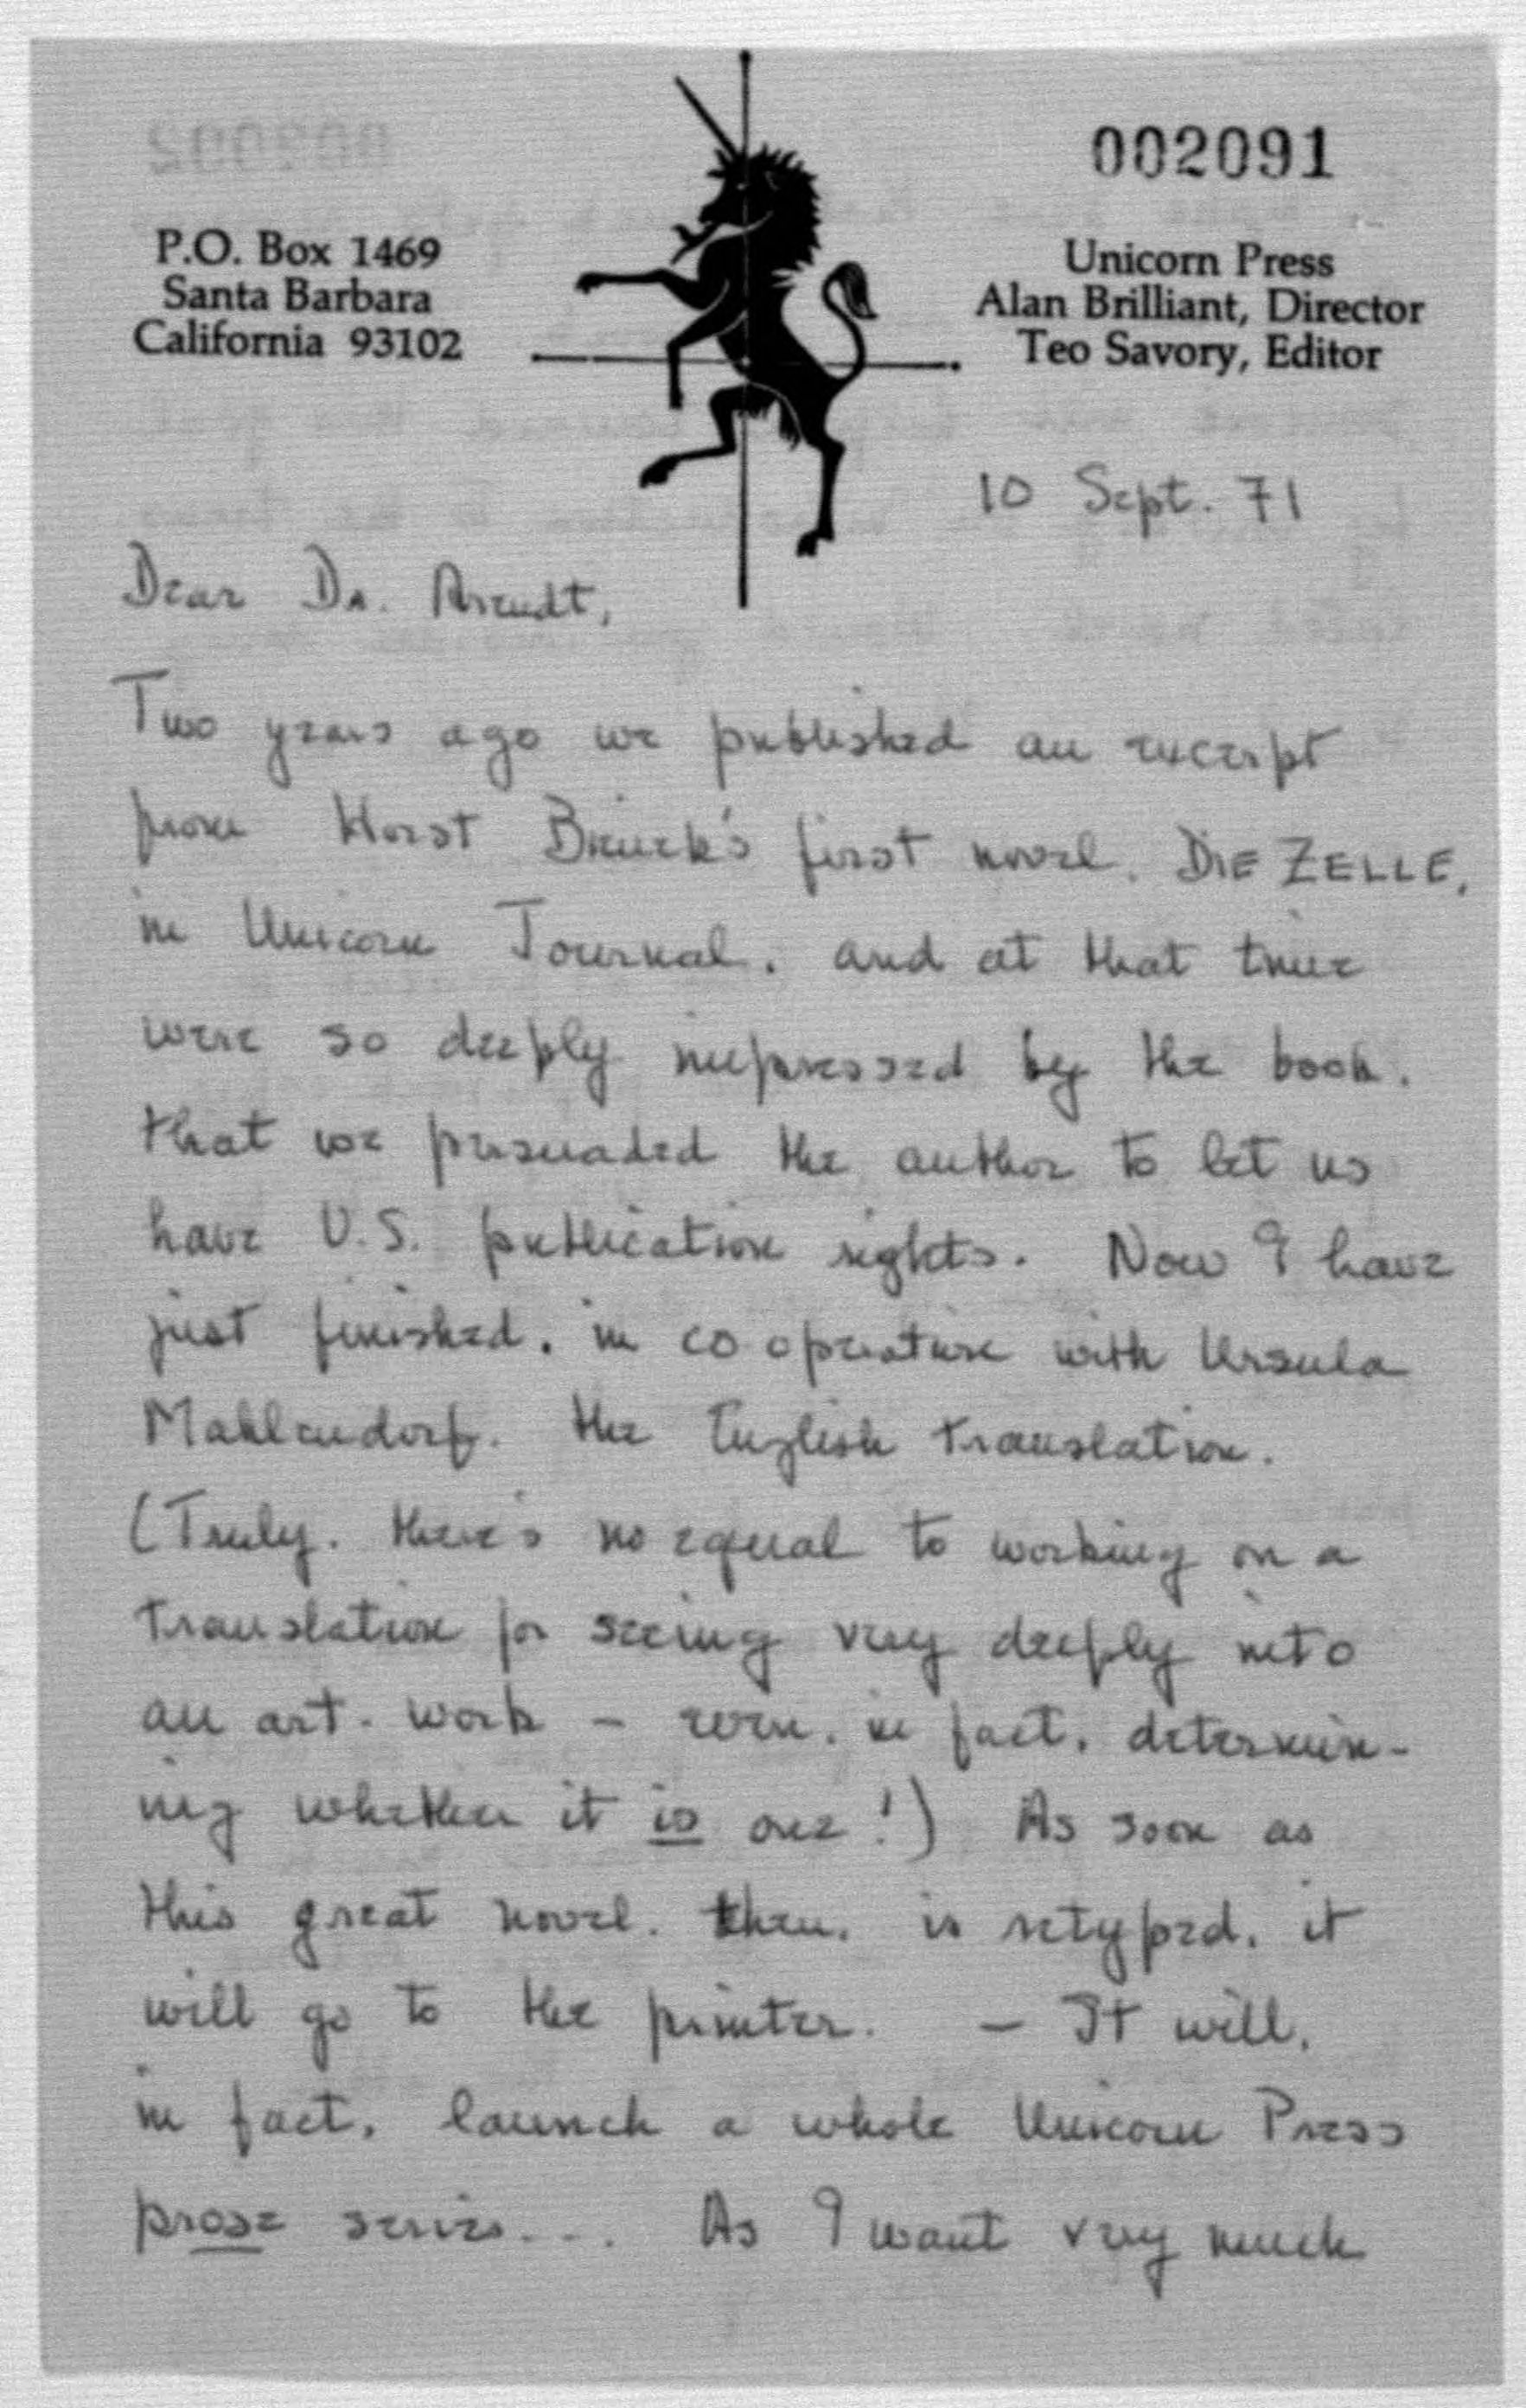 002091
P.O. Box 1469
Santa Barbara
California 93102
Unicorn Press
Alan Brilliant, Director
Teo Savory, Editor
10 Sept. 71
Dear Dr. Arendt,
Two years ago we published an excerpt
from Horst Bienek's first novel, DIE ZELLE,
in Unicorn Journal, and at that time
were so deeply impressed by the book,
that we persuaded the author to let us
have U.S. publication rights. Now I have
just finished, in cooperation with Ursula
Mahlendorf, the English translation.
(Truly, there's no equal to working on a
translation for seeing very deeply into
an art-work – even, in fact, determin-
ing whether it is one!) As soon as
this great novel, then, is retyped, it
will go to the printer. – It will,
in fact, launch a whole Unicorn Press
prose series... As I want very much